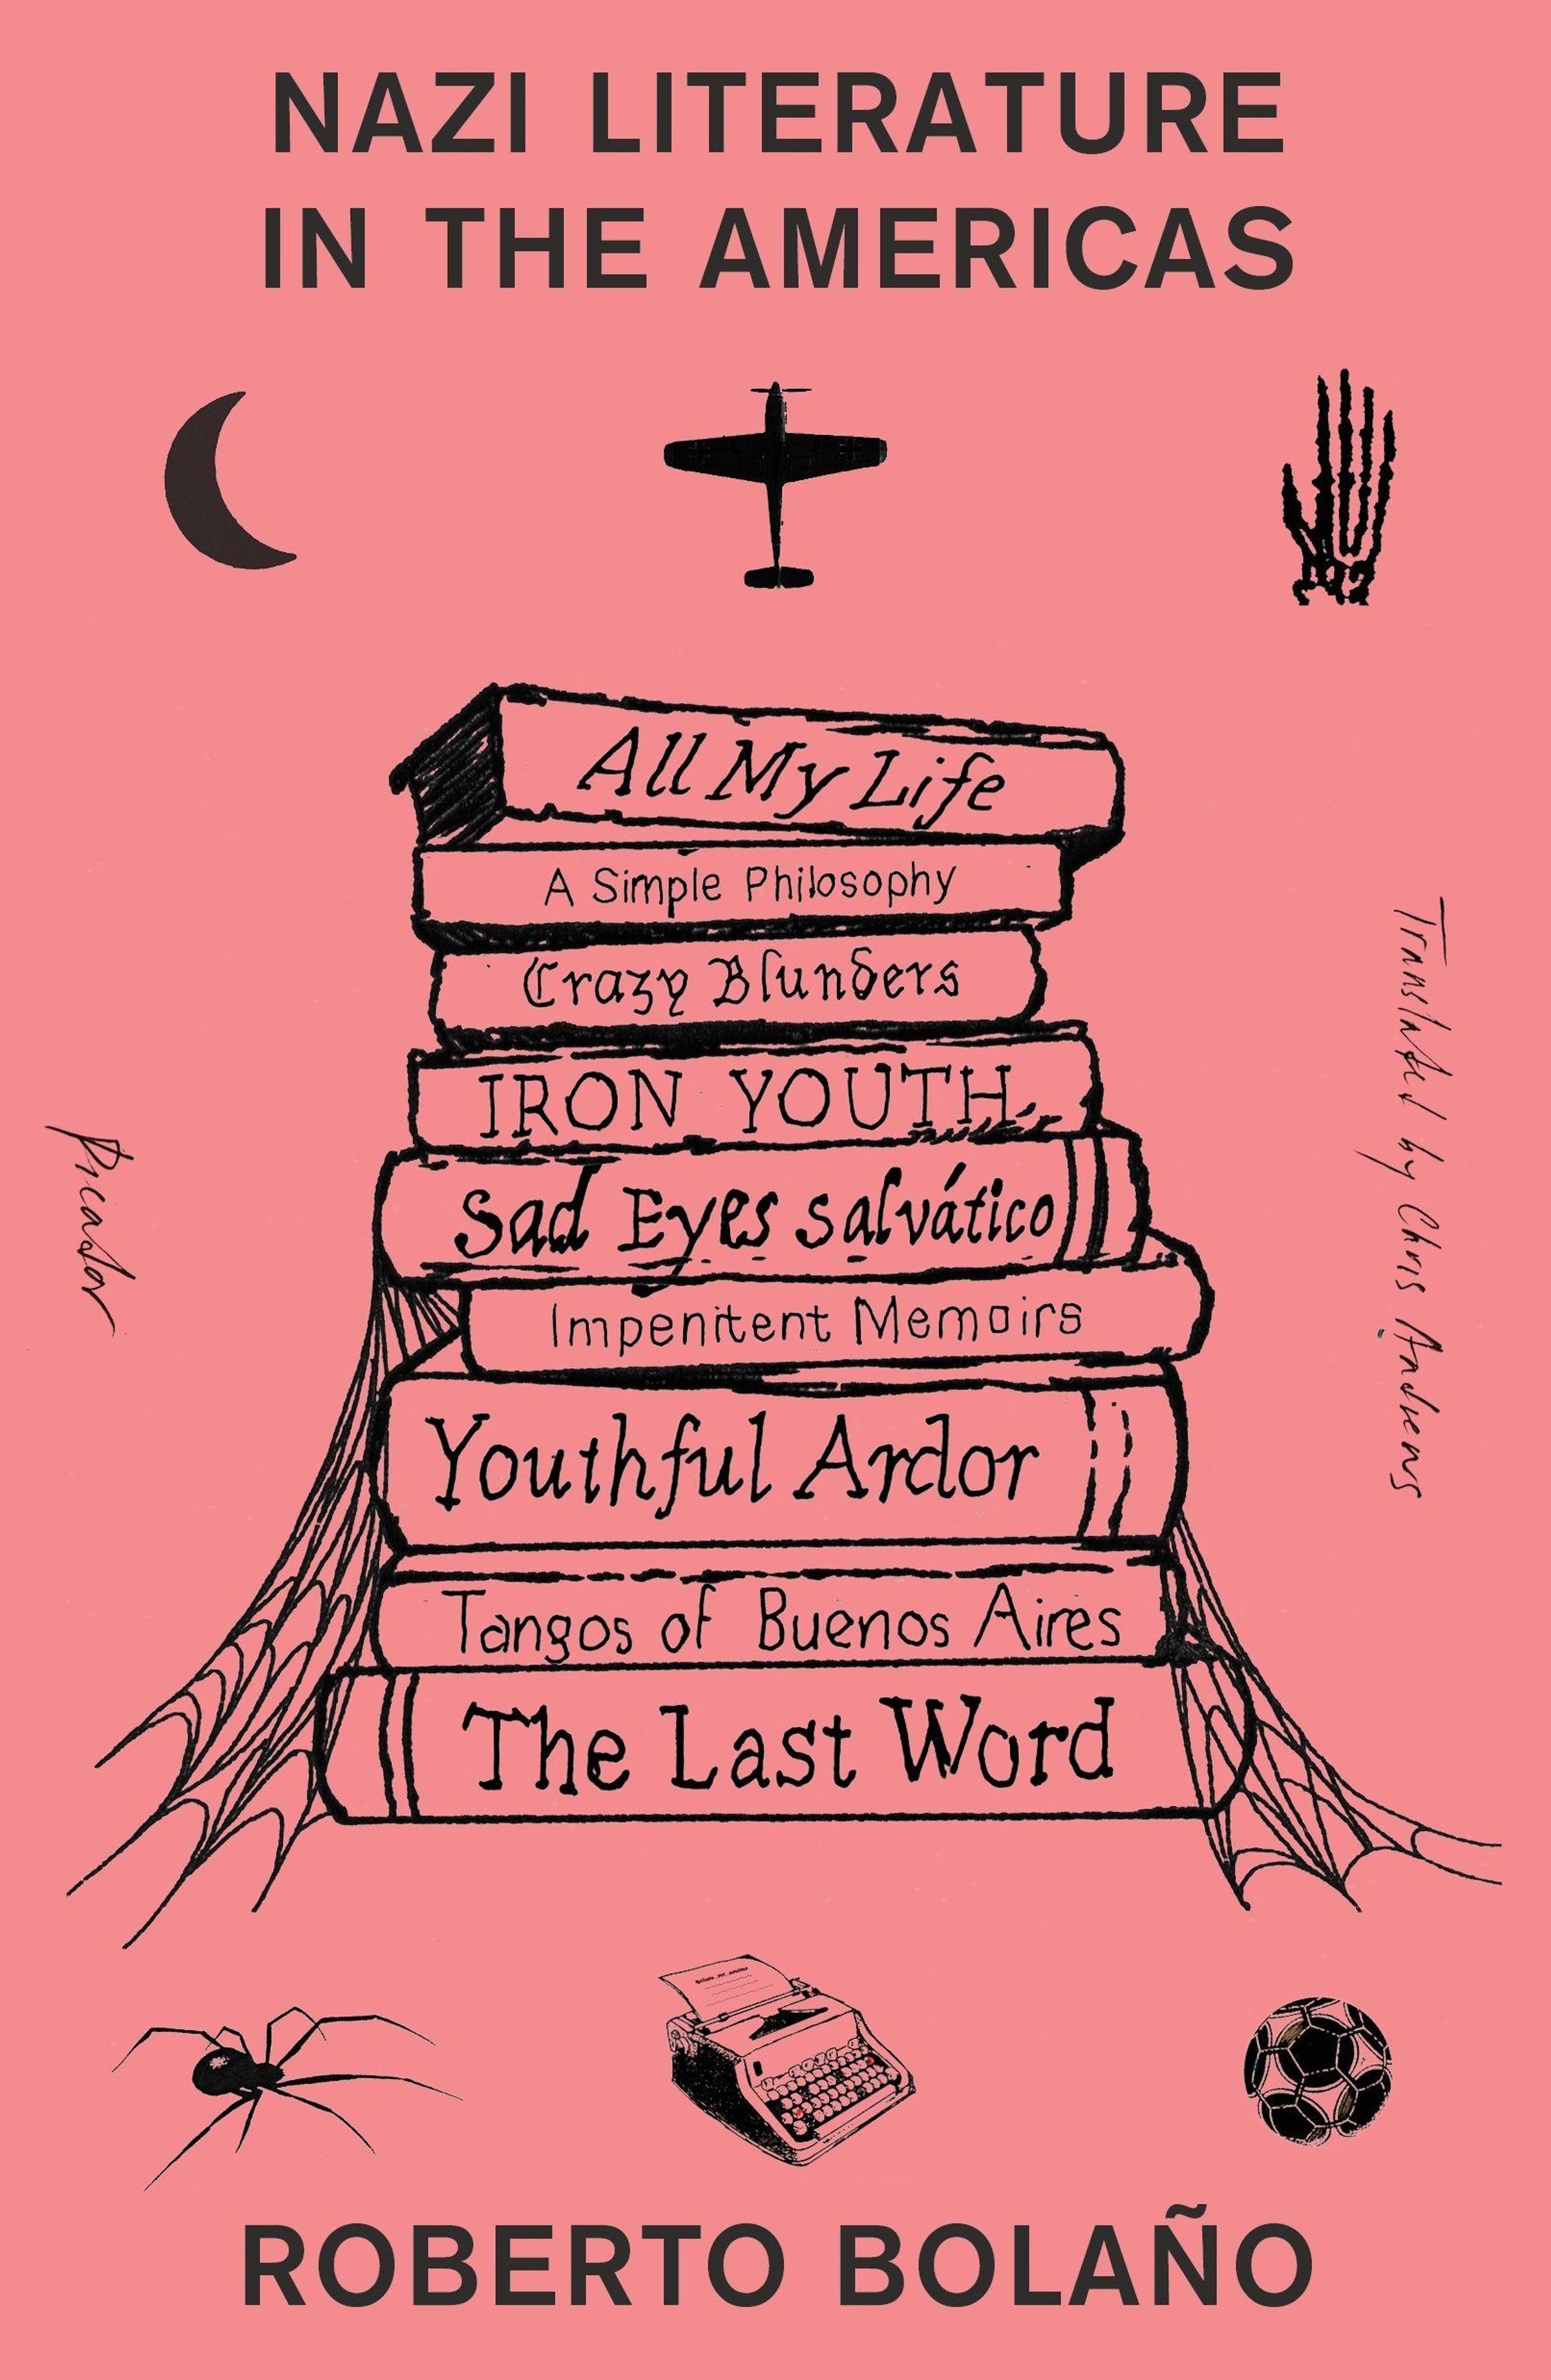 NAZI LITERATURE
IN THE AMERICAS
All My Life
A Simple Philosophy
Crazy Blunders
IRON YOUTH
Sad Eyes salvático
Impenitent Memoirs
Youthful Ardor
Tangos of Buenos Aires
The Last Word
Picador
Translated by Chris Andrews
ROBERTO BOLAÑO